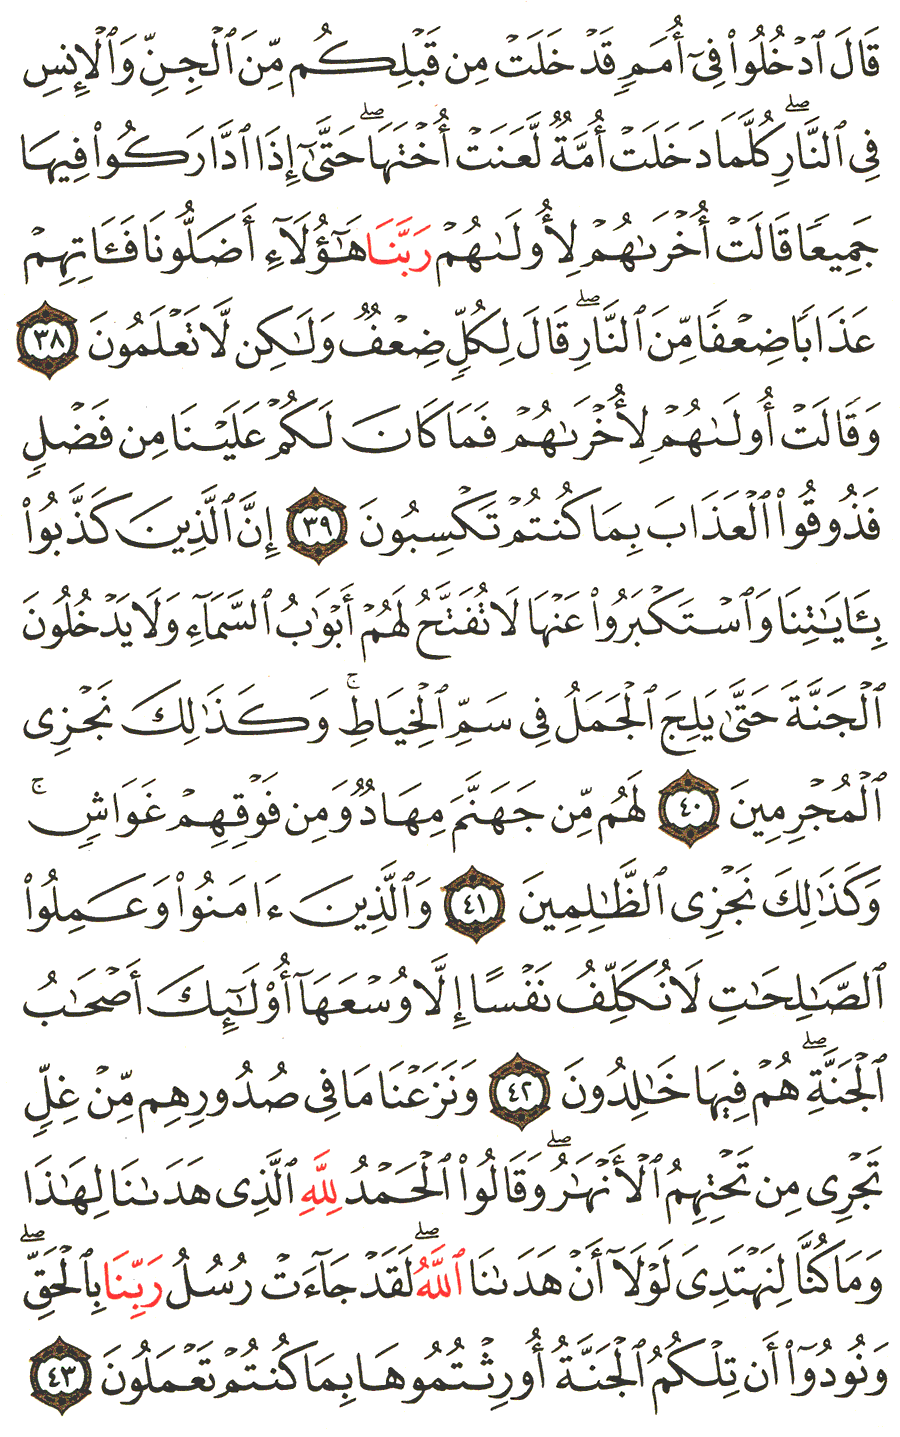 قَالَ ٱدْخُلُوا۟ فِىٓ أُمَمٍ قَدْ خَلَتْ مِن قَبْلِكُم مِّنَ ٱلْجِنِّ وَٱلْإِنسِ
فِى ٱلنَّارِ ۖ كُلَّمَا دَخَلَتْ أُمَّةٌ لَّعَنَتْ أُخْتَهَا ۖ حَتَّىٰٓ إِذَا ٱدَّارَكُوا۟ فِيهَا
جَمِيعًا قَالَتْ أُخْرَىٰهُمْ لِأُولَىٰهُمْ رَبَّنَا هَٰٓؤُلَآءِ أَضَلُّونَا فَـَٔاتِهِمْ
عَذَابًا ضِعْفًا مِّنَ ٱلنَّارِ ۖ قَالَ لِكُلٍّ ضِعْفٌ وَلَٰكِن لَّا تَعْلَمُونَ ٣٨
وَقَالَتْ أُولَىٰهُمْ لِأُخْرَىٰهُمْ فَمَا كَانَ لَكُمْ عَلَيْنَا مِن فَضْلٍ
فَذُوقُوا۟ ٱلْعَذَابَ بِمَا كُنتُمْ تَكْسِبُونَ ٣٩ إِنَّ ٱلَّذِينَ كَذَّبُوا۟
بِـَٔايَٰتِنَا وَٱسْتَكْبَرُوا۟ عَنْهَا لَا تُفَتَّحُ لَهُمْ أَبْوَٰبُ ٱلسَّمَآءِ وَلَا يَدْخُلُونَ
ٱلْجَنَّةَ حَتَّىٰ يَلِجَ ٱلْجَمَلُ فِى سَمِّ ٱلْخِيَاطِ ۚ وَكَذَٰلِكَ نَجْزِى
ٱلْمُجْرِمِينَ ٤٠ لَهُم مِّن جَهَنَّمَ مِهَادٌ وَمِن فَوْقِهِمْ غَوَاشٍ ۚ
وَكَذَٰلِكَ نَجْزِى ٱلظَّٰلِمِينَ ٤١ وَٱلَّذِينَ ءَامَنُوا۟ وَعَمِلُوا۟
ٱلصَّٰلِحَٰتِ لَا نُكَلِّفُ نَفْسًا إِلَّا وُسْعَهَآ أُو۟لَٰٓئِكَ أَصْحَٰبُ
ٱلْجَنَّةِ ۖ هُمْ فِيهَا خَٰلِدُونَ ٤٢ وَنَزَعْنَا مَا فِى صُدُورِهِم مِّنْ غِلٍّ
تَجْرِى مِن تَحْتِهِمُ ٱلْأَنْهَٰرُ ۖ وَقَالُوا۟ ٱلْحَمْدُ لِلَّهِ ٱلَّذِى هَدَىٰنَا لِهَٰذَا
وَمَا كُنَّا لِنَهْتَدِىَ لَوْلَآ أَنْ هَدَىٰنَا ٱللَّهُ ۖ لَقَدْ جَآءَتْ رُسُلُ رَبِّنَا بِٱلْحَقِّ ۖ
وَنُودُوٓا۟ أَن تِلْكُمُ ٱلْجَنَّةُ أُورِثْتُمُوهَا بِمَا كُنتُمْ تَعْمَلُونَ ٤٣